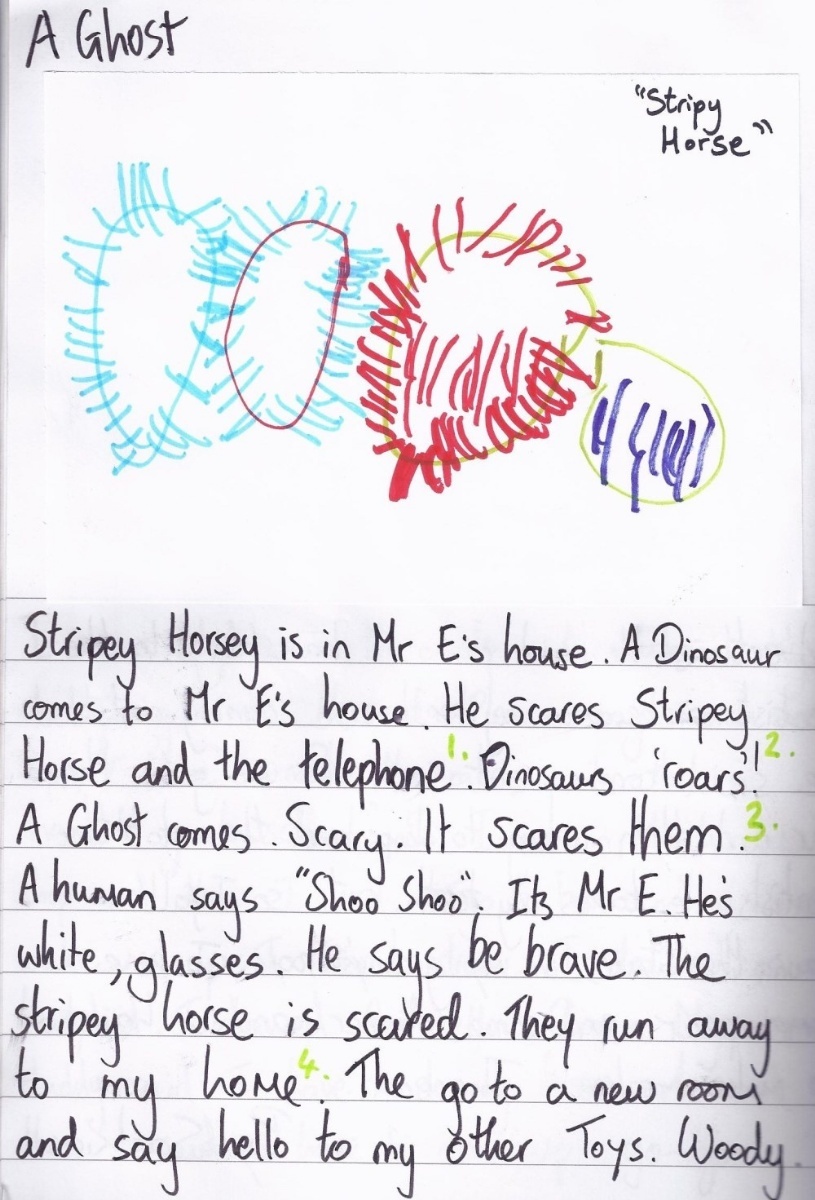 A Ghost
"Stripy
Horse"
Stripey Horsey is in Mr E's house. A Dinosaur
comes to Mr E's house. He scares Stripey
Horse and the telephone 1. Dinosaurs 'roars'! 2.
A Ghost comes. Scary. It scares them. 3.
A human says "Shoo Shoo". Its Mr E. He's
white, glasses. He says be brave. The
stripey horse is scared. They run away
to my home 4. The go to a new room
and say hello to my other Toys. Woody.